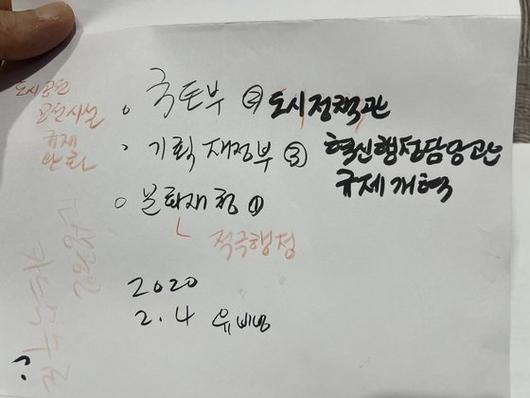 도시공원
공원시설
규제
완화
국토부 ② 도시정책관
기획재정부 ③ 혁신행정담당관
규제개혁
문화재청 ①
적극행정
2020
2.4